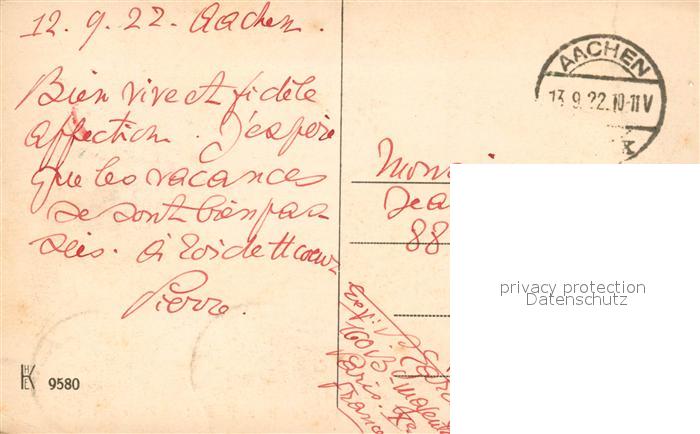 12.9.22. Aachen.
Bien vive et fidèle
affection. J'espère
que les vacances
se sont bien pas-
sées. à toi de tt coeur
Pierre.
HK 9580
AACHEN
13.9.22.10-11V
Mon
Jea
88
Exp:
160 Bd
Paris.
France
privacy protection
Datenschutz